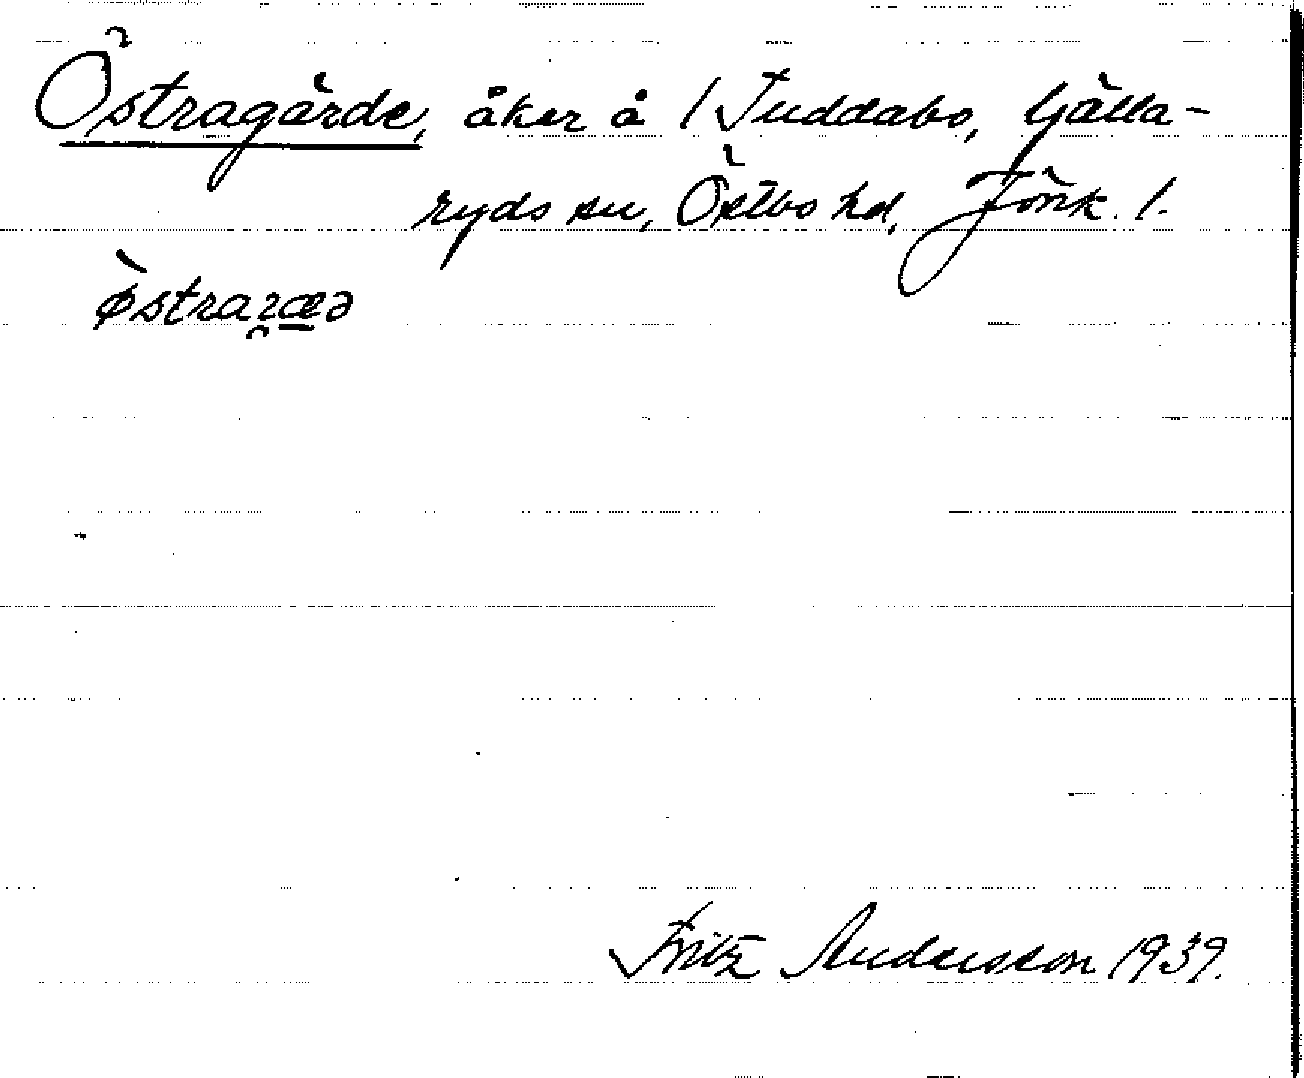 Östragärde, åker å 1 Tuddabo, Gälla-
ryds sn, Östbo hd, Jönk. l.
Fritz Andersson 1939.